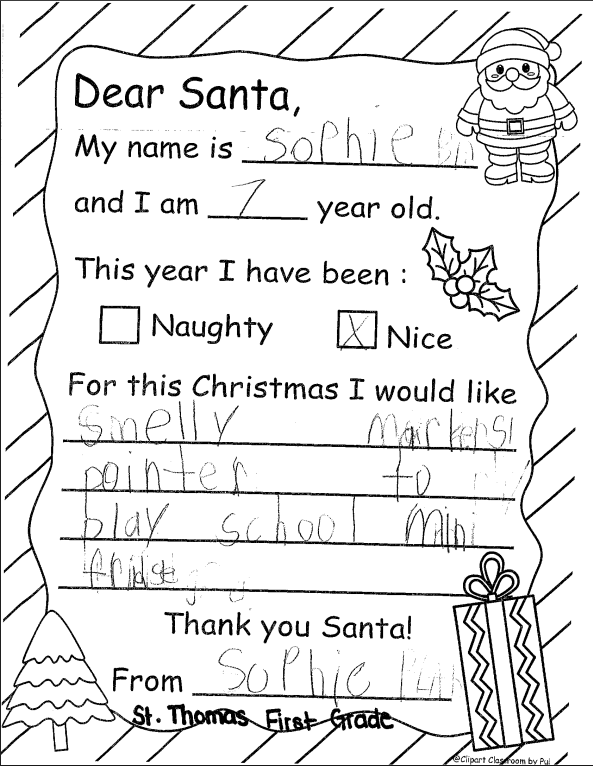 Dear Santa,
My name is Sophie
and I am 7 year old.
This year I have been :
Naughty X Nice
For this Christmas I would like
Smelly markers!
pointer to
play school Mini
fridge
Thank you Santa!
From Sophie
St. Thomas First Grade
@Clipart Classroom by Pul